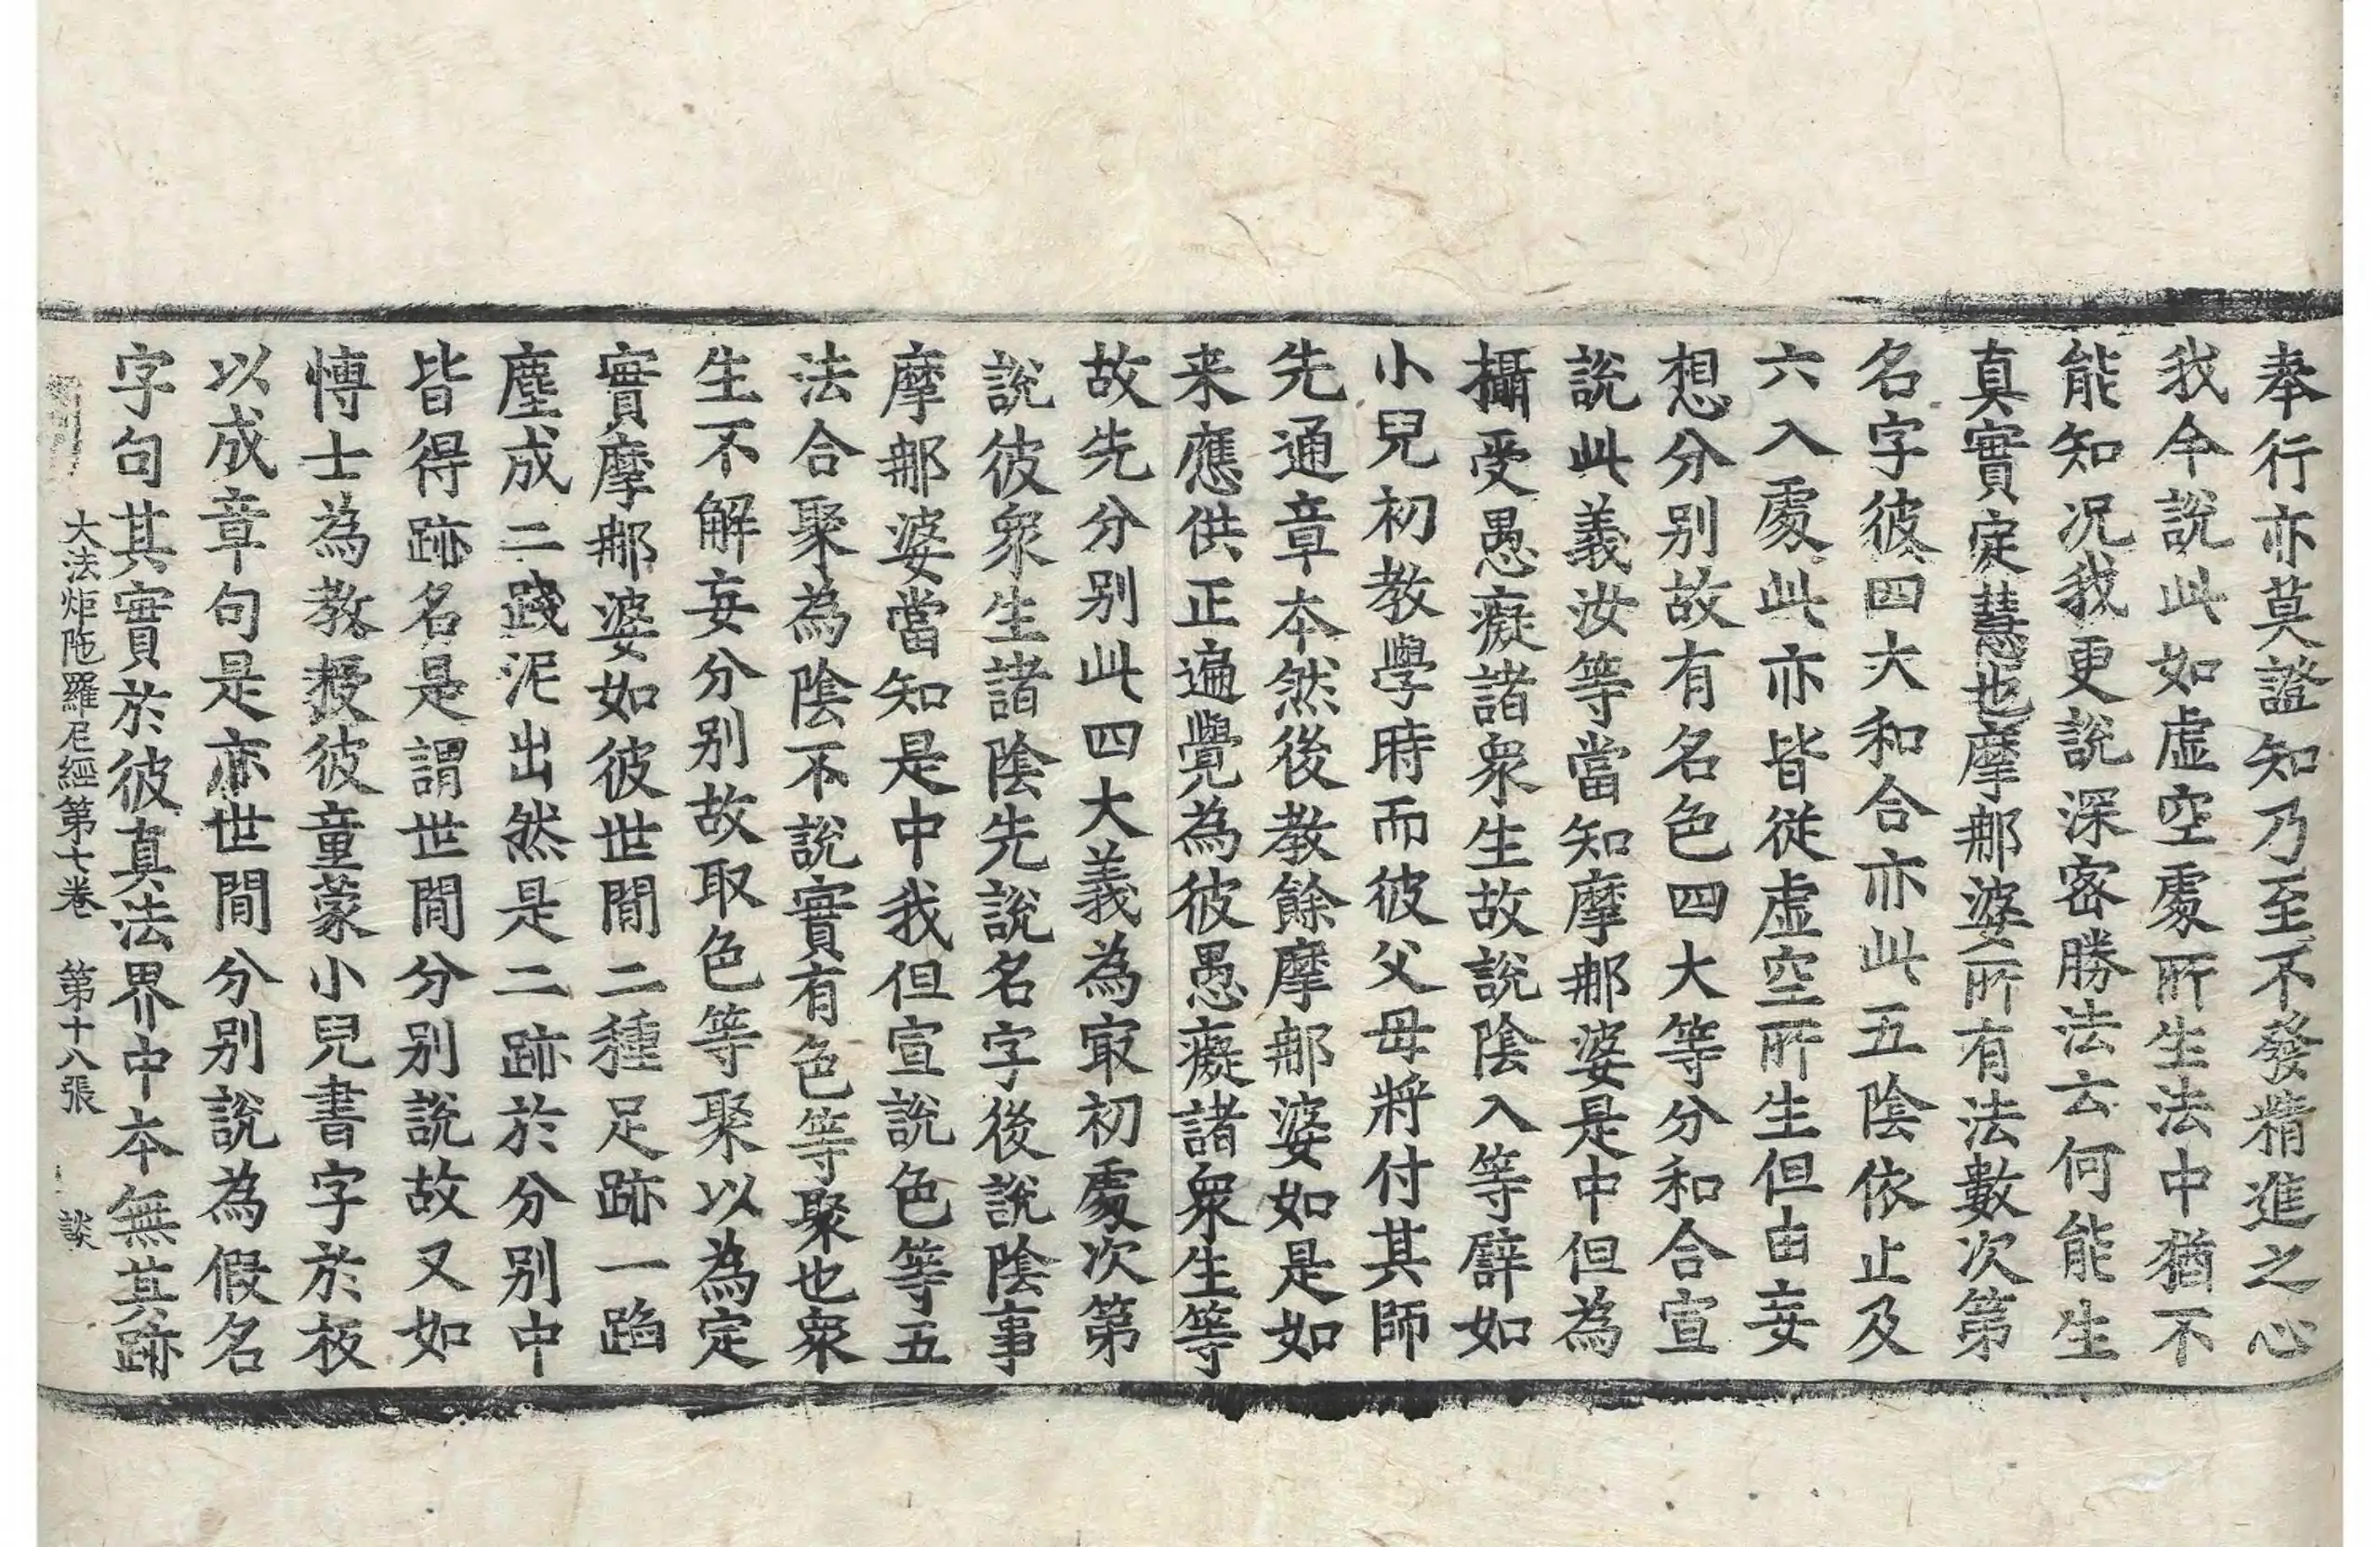 奉行亦莫證知乃至不發精進之心
我今說此如虛空處所生法中猶不
能知况我更說深密勝法云何能生
真實定慧也摩那婆所有法數次第
名字彼四大和合亦此五陰依止及
六入處此亦皆從虛空所生但由妄
想分別故有名色四大等分和合宣
說此義汝等當知摩那婆是中但為
攝受愚癡諸衆生故說陰入等譬如
小兒初教學時而彼父母將付其師
先通章本然後教餘摩那婆如是如
来應供正遍覺為彼愚癡諸衆生等
故先分別此四大義為㝡初處次第
說彼衆生諸陰先說名字後說陰事
摩那婆當知是中我但宣說色等五
法合聚為陰不說實有色等聚也衆
生不解妄分別故取色等聚以為定
實摩那婆如彼世間二種足跡一蹈
塵成二踐泥出然是二跡於分別中
皆得跡名是謂世間分別說故又如
博士為教授彼童蒙小兒書字於板
以成章句是亦世間分別說為假名
字句其實於彼真法界中本無其跡
大法炬陁羅尼經第七卷 第十八張 談